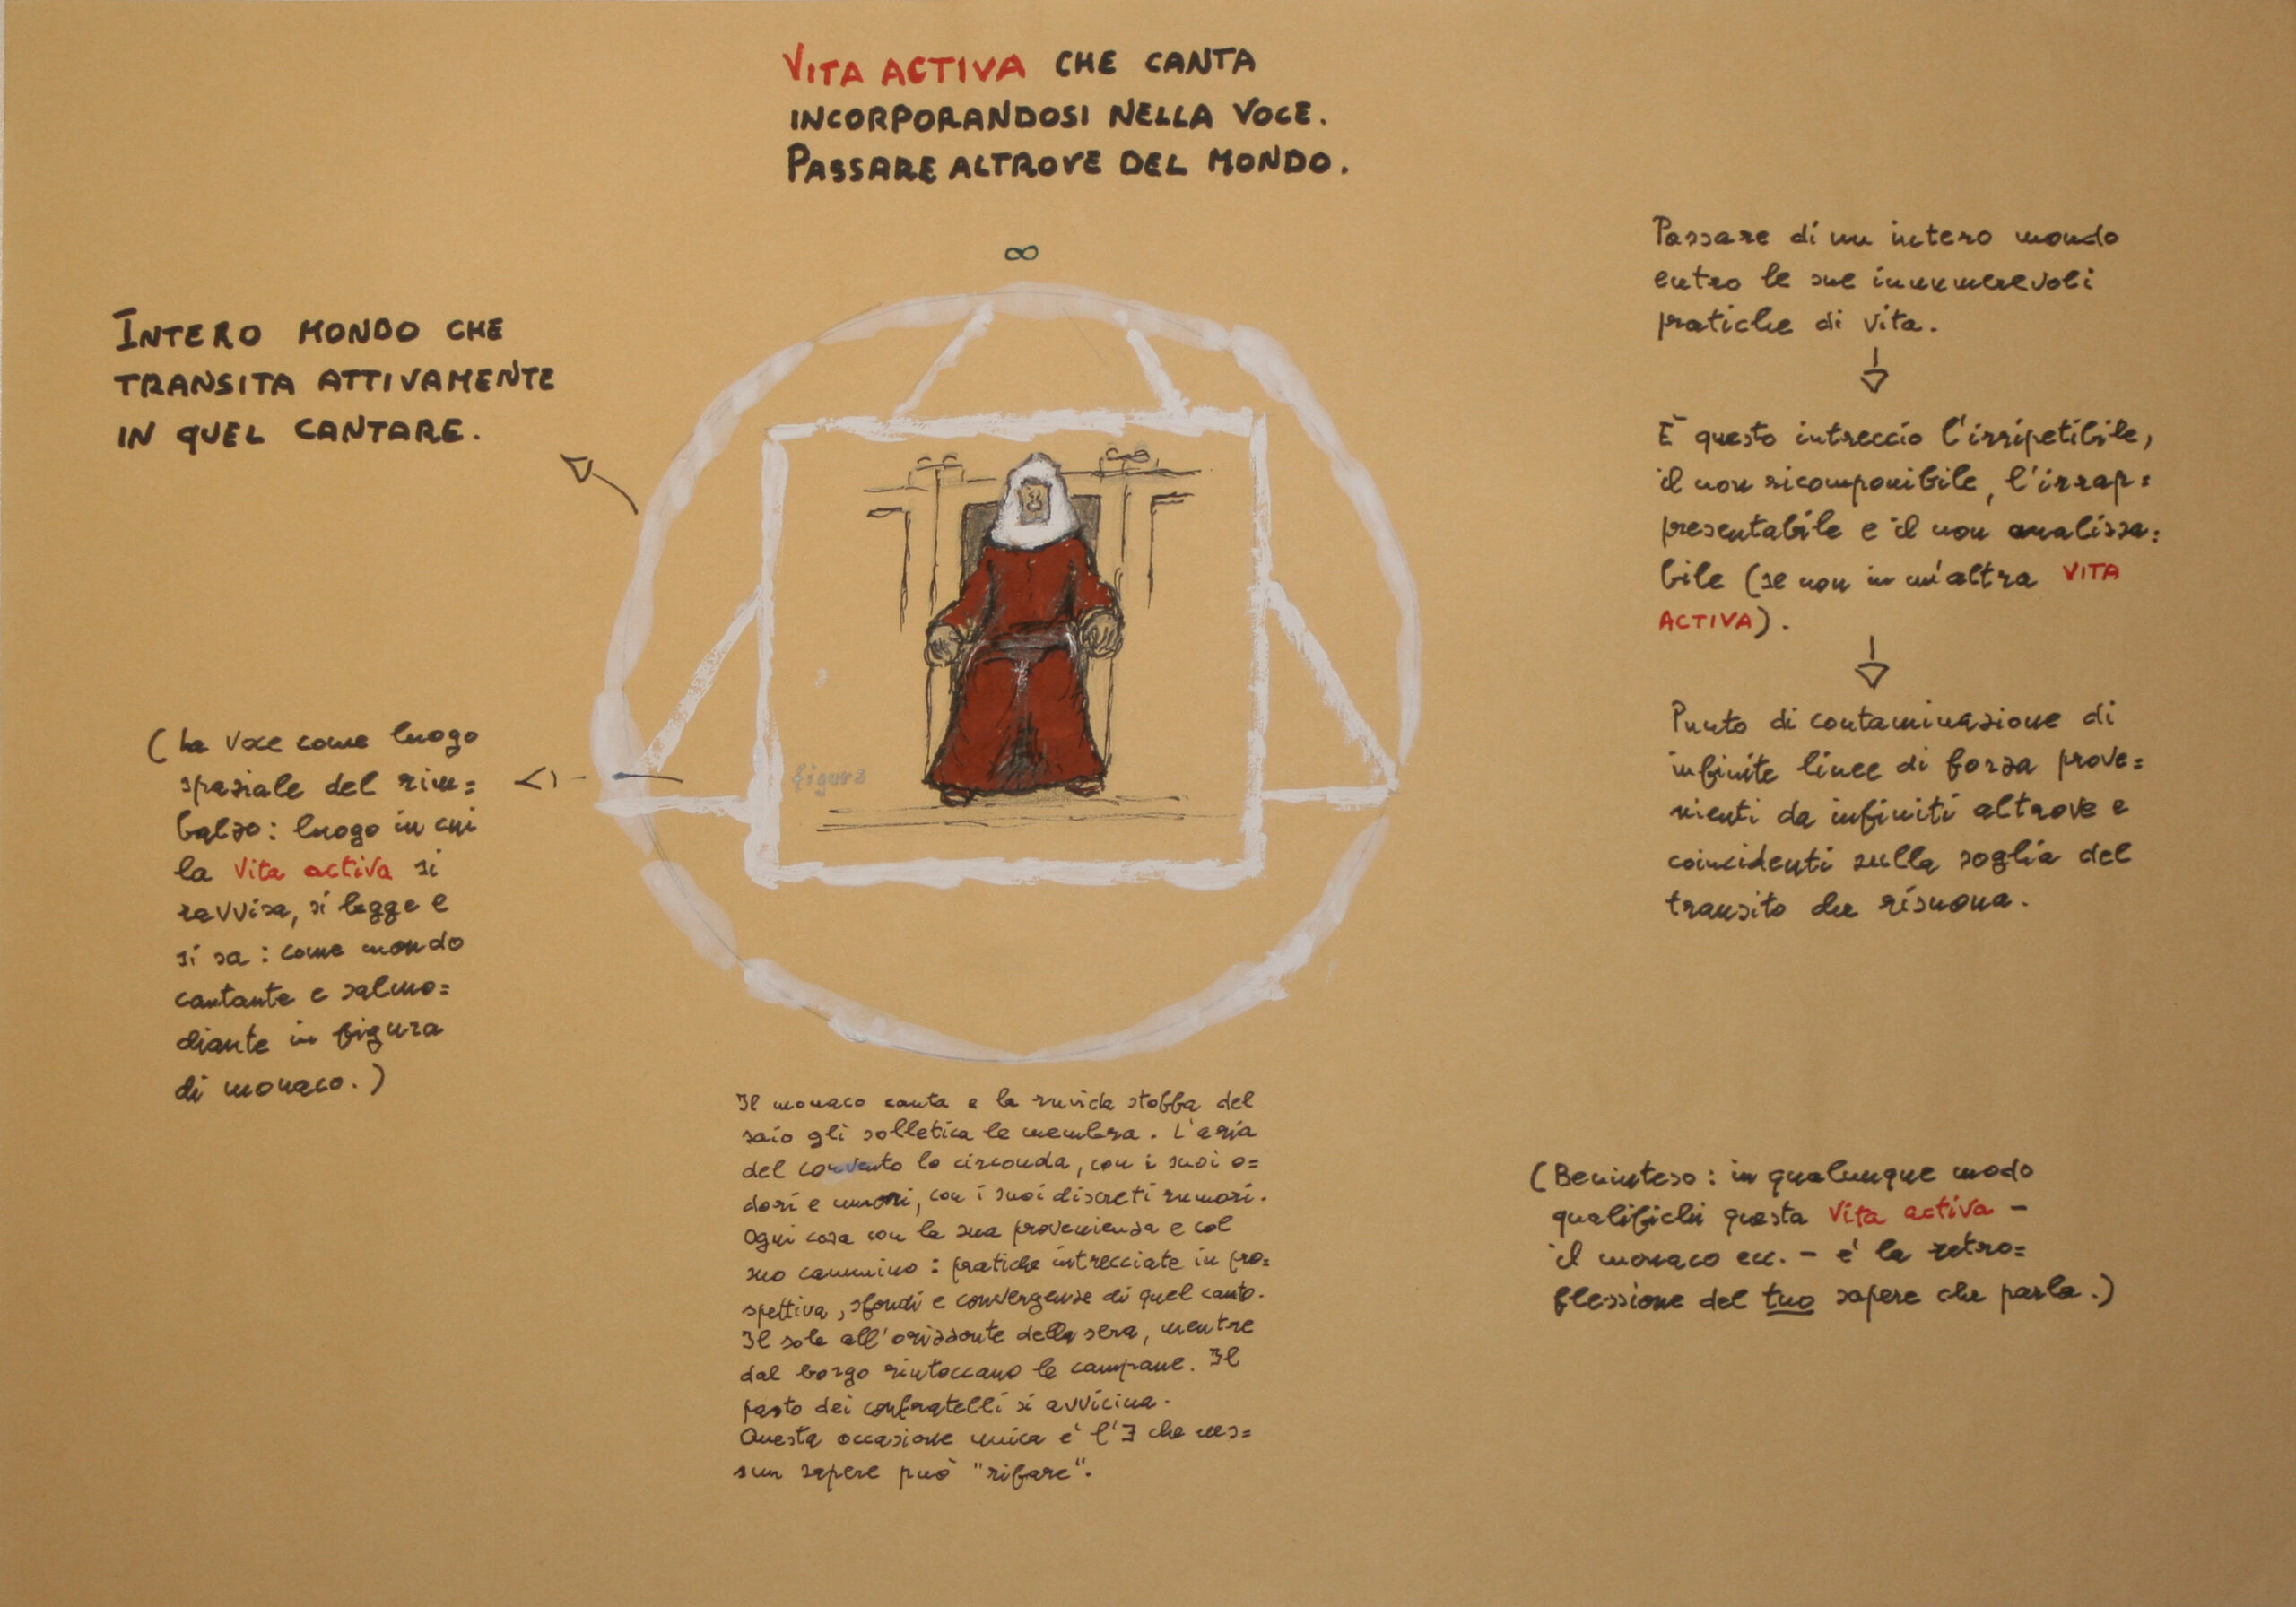 VITA ACTIVA CHE CANTA
INCORPORANDOSI NELLA VOCE.
PASSARE ALTROVE DEL MONDO.
∞
INTERO MONDO CHE
TRANSITA ATTIVAMENTE
IN QUEL CANTARE.
(La voce come luogo
spaziale del rim=
balzo: luogo in cui
la vita activa si
ravvisa, si legge e
si sa: come mondo
cantante e salmo=
diante in figura
di monaco.)
figura
Il monaco canta e la ruvida stoffa del
saio gli solletica le membra. L'aria
del convento lo circonda, con i suoi o=
dori e umori, con i suoi discreti rumori.
Ogni cosa con la sua provenienza e col
suo cammino: pratiche intrecciate in pro=
spettiva, sfondi e convergenze di quel canto.
Il sole all'orizzonte della sera, mentre
dal borgo rintoccano le campane. Il
pasto dei confratelli si avvicina.
Questa occasione unica è l'∃ che nes=
sun sapere può "rifare".
Passare di un intero mondo
entro le sue innumerevoli
pratiche di vita.
È questo intreccio l'irripetibile,
il non ricomponibile, l'irrap=
presentabile e il non analizza=
bile (se non in un'altra VITA
ACTIVA).
Punto di contaminazione di
infinite linee di forza prove=
nienti da infiniti altrove e
coincidenti sulla soglia del
transito che risuona.
(Beninteso: in qualunque modo
qualifichi questa vita activa -
il monaco ecc. - è la retro=
flessione del tuo sapere che parla.)